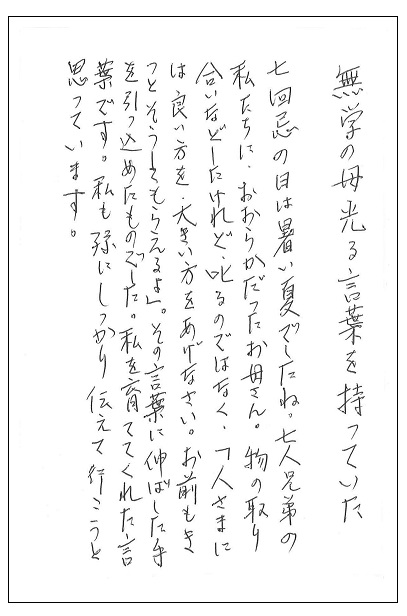 無学の母光る言葉を持っていた
七回忌の日は暑い夏でしたね。七人兄弟の
私たちに、おおらかだったお母さん。物の取り
合いなどしたけれど、叱るのではなく、「人さまに
は良い方を、大きい方をあげなさい。お前もき
っとそうしてもらえるよ」。その言葉に伸ばした手
を引っ込めたものでした。私を育ててくれた言
葉です。私も孫にしっかり伝えて行こうと
思っています。